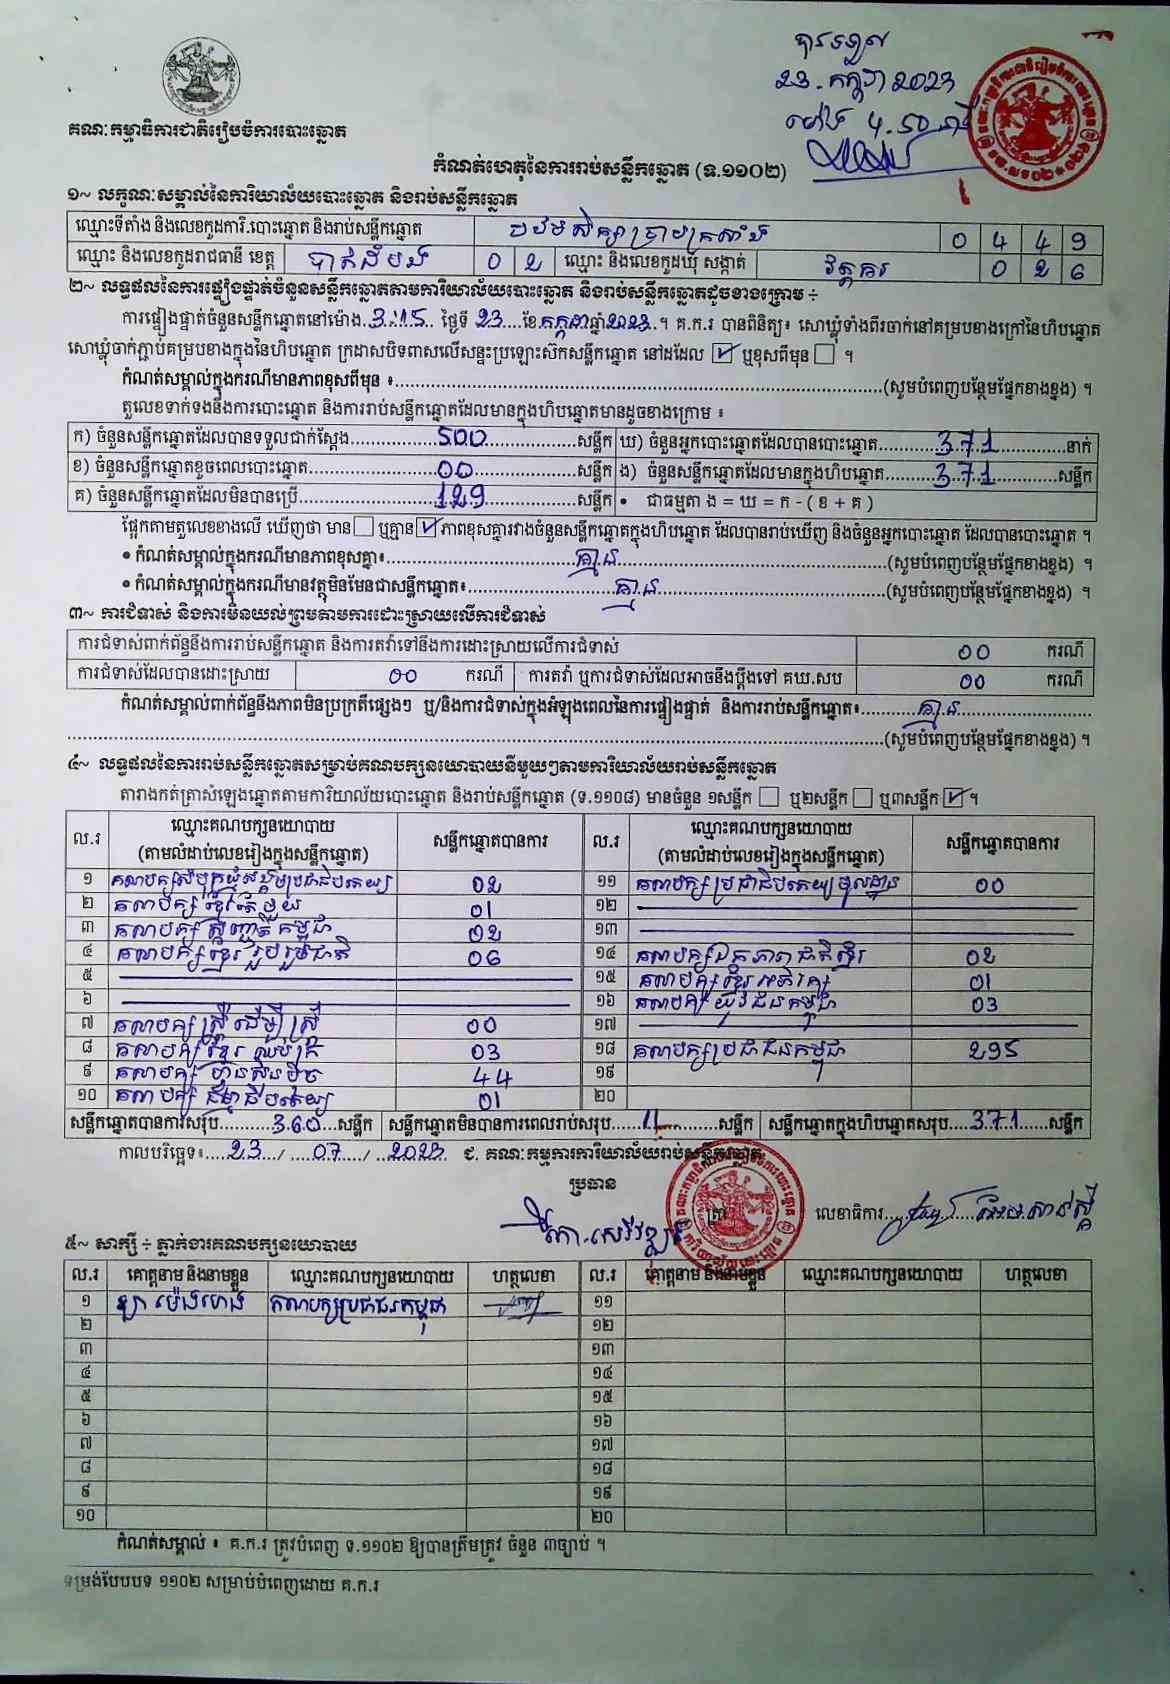 បានទទួល
23. កក្កដា 2023
ម៉ោង 4.50 នាទី
គណៈកម្មាធិការជាតិរៀបចំការបោះឆ្នោត
កំណត់ហេតុនៃការរាប់សន្លឹកឆ្នោត (ទ.១១០២)
១~ លក្ខណៈសម្គាល់នៃការិយាល័យបោះឆ្នោត និងរាប់សន្លឹកឆ្នោត
ឈ្មោះទីតាំង និងលេខកូដការិ.បោះឆ្នោត និងរាប់សន្លឹកឆ្នោត បឋមសិក្សា 0 4 4 9
ឈ្មោះ និងលេខកូដរាជធានី ខេត្ត បាត់ដំបង 0 2 ឈ្មោះ និងលេខកូដឃុំ សង្កាត់ វត្តគរ 0 2 6
២~ លទ្ធផលនៃការផ្ទៀងផ្ទាត់ចំនួនសន្លឹកឆ្នោតតាមការិយាល័យបោះឆ្នោត និងរាប់សន្លឹកឆ្នោតដូចខាងក្រោម ÷
ការផ្ទៀងផ្ទាត់ចំនួនសន្លឹកឆ្នោតនៅម៉ោង 3:15 ថ្ងៃទី 23 ខែ កក្កដា ឆ្នាំ 2023 ។ គ.ក.រ បានពិនិត្យ៖ សោឃ្លុំទាំងពីរចាក់នៅគម្របខាងក្រៅនៃហិបឆ្នោត
សោឃ្លុំចាក់ភ្ជាប់គម្របខាងក្នុងនៃហិបឆ្នោត ក្រដាសបិទពាសលើសន្ទះប្រឡោះស៊កសន្លឹកឆ្នោត នៅដដែល ☑ ឬខុសពីមុន ☐ ។
កំណត់សម្គាល់ក្នុងករណីមានភាពខុសពីមុន ៖ (សូមបំពេញបន្ថែមផ្នែកខាងខ្នង) ។
តួលេខទាក់ទងនឹងការបោះឆ្នោត និងការរាប់សន្លឹកឆ្នោតដែលមានក្នុងហិបឆ្នោតមានដូចខាងក្រោម ៖
ក) ចំនួនសន្លឹកឆ្នោតដែលបានទទួលជាក់ស្តែង 500 សន្លឹក ឃ) ចំនួនអ្នកបោះឆ្នោតដែលបានបោះឆ្នោត 371 នាក់
ខ) ចំនួនសន្លឹកឆ្នោតខូចពេលបោះឆ្នោត 00 សន្លឹក ង) ចំនួនសន្លឹកឆ្នោតដែលមានក្នុងហិបឆ្នោត 371 សន្លឹក
គ) ចំនួនសន្លឹកឆ្នោតដែលមិនបានប្រើ 129 សន្លឹក • ជាធម្មតា ង = ឃ = ក - ( ខ + គ )
ផ្អែកតាមតួលេខខាងលើ ឃើញថា មាន ☐ ឬគ្មាន ☑ ភាពខុសគ្នារវាងចំនួនសន្លឹកឆ្នោតក្នុងហិបឆ្នោត ដែលបានរាប់ឃើញ និងចំនួនអ្នកបោះឆ្នោត ដែលបានបោះឆ្នោត ។
• កំណត់សម្គាល់ក្នុងករណីមានភាពខុសគ្នា៖ គ្មាន (សូមបំពេញបន្ថែមផ្នែកខាងខ្នង) ។
• កំណត់សម្គាល់ក្នុងករណីមានវត្ថុមិនមែនជាសន្លឹកឆ្នោត៖ គ្មាន (សូមបំពេញបន្ថែមផ្នែកខាងខ្នង) ។
៣~ ការជំទាស់ និងការមិនយល់ព្រមតាមការដោះស្រាយលើការជំទាស់
ការជំទាស់ពាក់ព័ន្ធនឹងការរាប់សន្លឹកឆ្នោត និងការតវ៉ាទៅនឹងការដោះស្រាយលើការជំទាស់ 00 ករណី
ការជំទាស់ដែលបានដោះស្រាយ 00 ករណី ការតវ៉ា ឬការជំទាស់ដែលអាចនឹងប្តឹងទៅ គឃ.សប 00 ករណី
កំណត់សម្គាល់ពាក់ព័ន្ធនឹងភាពមិនប្រក្រតីផ្សេងៗ ឬ/និងការជំទាស់ក្នុងអំឡុងពេលនៃការផ្ទៀងផ្ទាត់ និងការរាប់សន្លឹកឆ្នោត៖ គ្មាន
(សូមបំពេញបន្ថែមផ្នែកខាងខ្នង) ។
៤~ លទ្ធផលនៃការរាប់សន្លឹកឆ្នោតសម្រាប់គណបក្សនយោបាយនីមួយៗតាមការិយាល័យរាប់សន្លឹកឆ្នោត
តារាងកត់ត្រាសំឡេងឆ្នោតតាមការិយាល័យបោះឆ្នោត និងរាប់សន្លឹកឆ្នោត (ទ.១១០៨) មានចំនួន ១សន្លឹក ☐ ឬ២សន្លឹក ☐ ឬ៣សន្លឹក ☑ ។
ល.រ ឈ្មោះគណបក្សនយោបាយ (តាមលំដាប់លេខរៀងក្នុងសន្លឹកឆ្នោត) សន្លឹកឆ្នោតបានការ ល.រ ឈ្មោះគណបក្សនយោបាយ (តាមលំដាប់លេខរៀងក្នុងសន្លឹកឆ្នោត) សន្លឹកឆ្នោតបានការ
១ គណបក្សសំបុកឃ្មុំសង្គមប្រជាធិបតេយ្យ 02 ១១ គណបក្សប្រជាធិបតេយ្យមូលដ្ឋាន 00
២ គណបក្សខ្មែរតែមួយ 01 ១២
៣ គណបក្សស្រឡាញ់ជាតិកម្ពុជា 02 ១៣
៤ គណបក្សខ្មែររួបរួមជាតិ 06 ១៤ គណបក្សឯកភាពជាតិខ្មែរ 02
៥ ១៥ គណបក្សខ្មែរអភិរក្ស 01
៦ ១៦ គណបក្សយុវជនកម្ពុជា 03
៧ គណបក្សស្ត្រីដើម្បីស្ត្រី 00 ១៧
៨ គណបក្សខ្មែរឈប់ក្រ 03 ១៨ គណបក្សប្រជាជនកម្ពុជា 295
៩ គណបក្សហ្វ៊ុនស៊ិនប៉ិច 44 ១៩
១០ គណបក្សធម្មាធិបតេយ្យ 01 ២០
សន្លឹកឆ្នោតបានការសរុប 360 សន្លឹក សន្លឹកឆ្នោតមិនបានការពេលរាប់សរុប 11 សន្លឹក សន្លឹកឆ្នោតក្នុងហិបឆ្នោតសរុប 371 សន្លឹក
កាលបរិច្ឆេទ៖ 23 / 07 / 2023 ៩. គណៈកម្មការការិយាល័យរាប់សន្លឹកឆ្នោត
ប្រធាន
ត្រា លេខាធិការ
៥~ សាក្សី ÷ ភ្នាក់ងារគណបក្សនយោបាយ
ល.រ គោត្តនាម និងនាមខ្លួន ឈ្មោះគណបក្សនយោបាយ ហត្ថលេខា ល.រ គោត្តនាម និងនាមខ្លួន ឈ្មោះគណបក្សនយោបាយ ហត្ថលេខា
១ ម៉េងហេង គណបក្សប្រជាជនកម្ពុជា ១១
២ ១២
៣ ១៣
៤ ១៤
៥ ១៥
៦ ១៦
៧ ១៧
៨ ១៨
៩ ១៩
១០ ២០
កំណត់សម្គាល់ ៖ គ.ក.រ ត្រូវបំពេញ ទ.១១០២ ឱ្យបានត្រឹមត្រូវ ចំនួន ៣ច្បាប់ ។
ទម្រង់បែបបទ ១១០២ សម្រាប់បំពេញដោយ គ.ក.រ